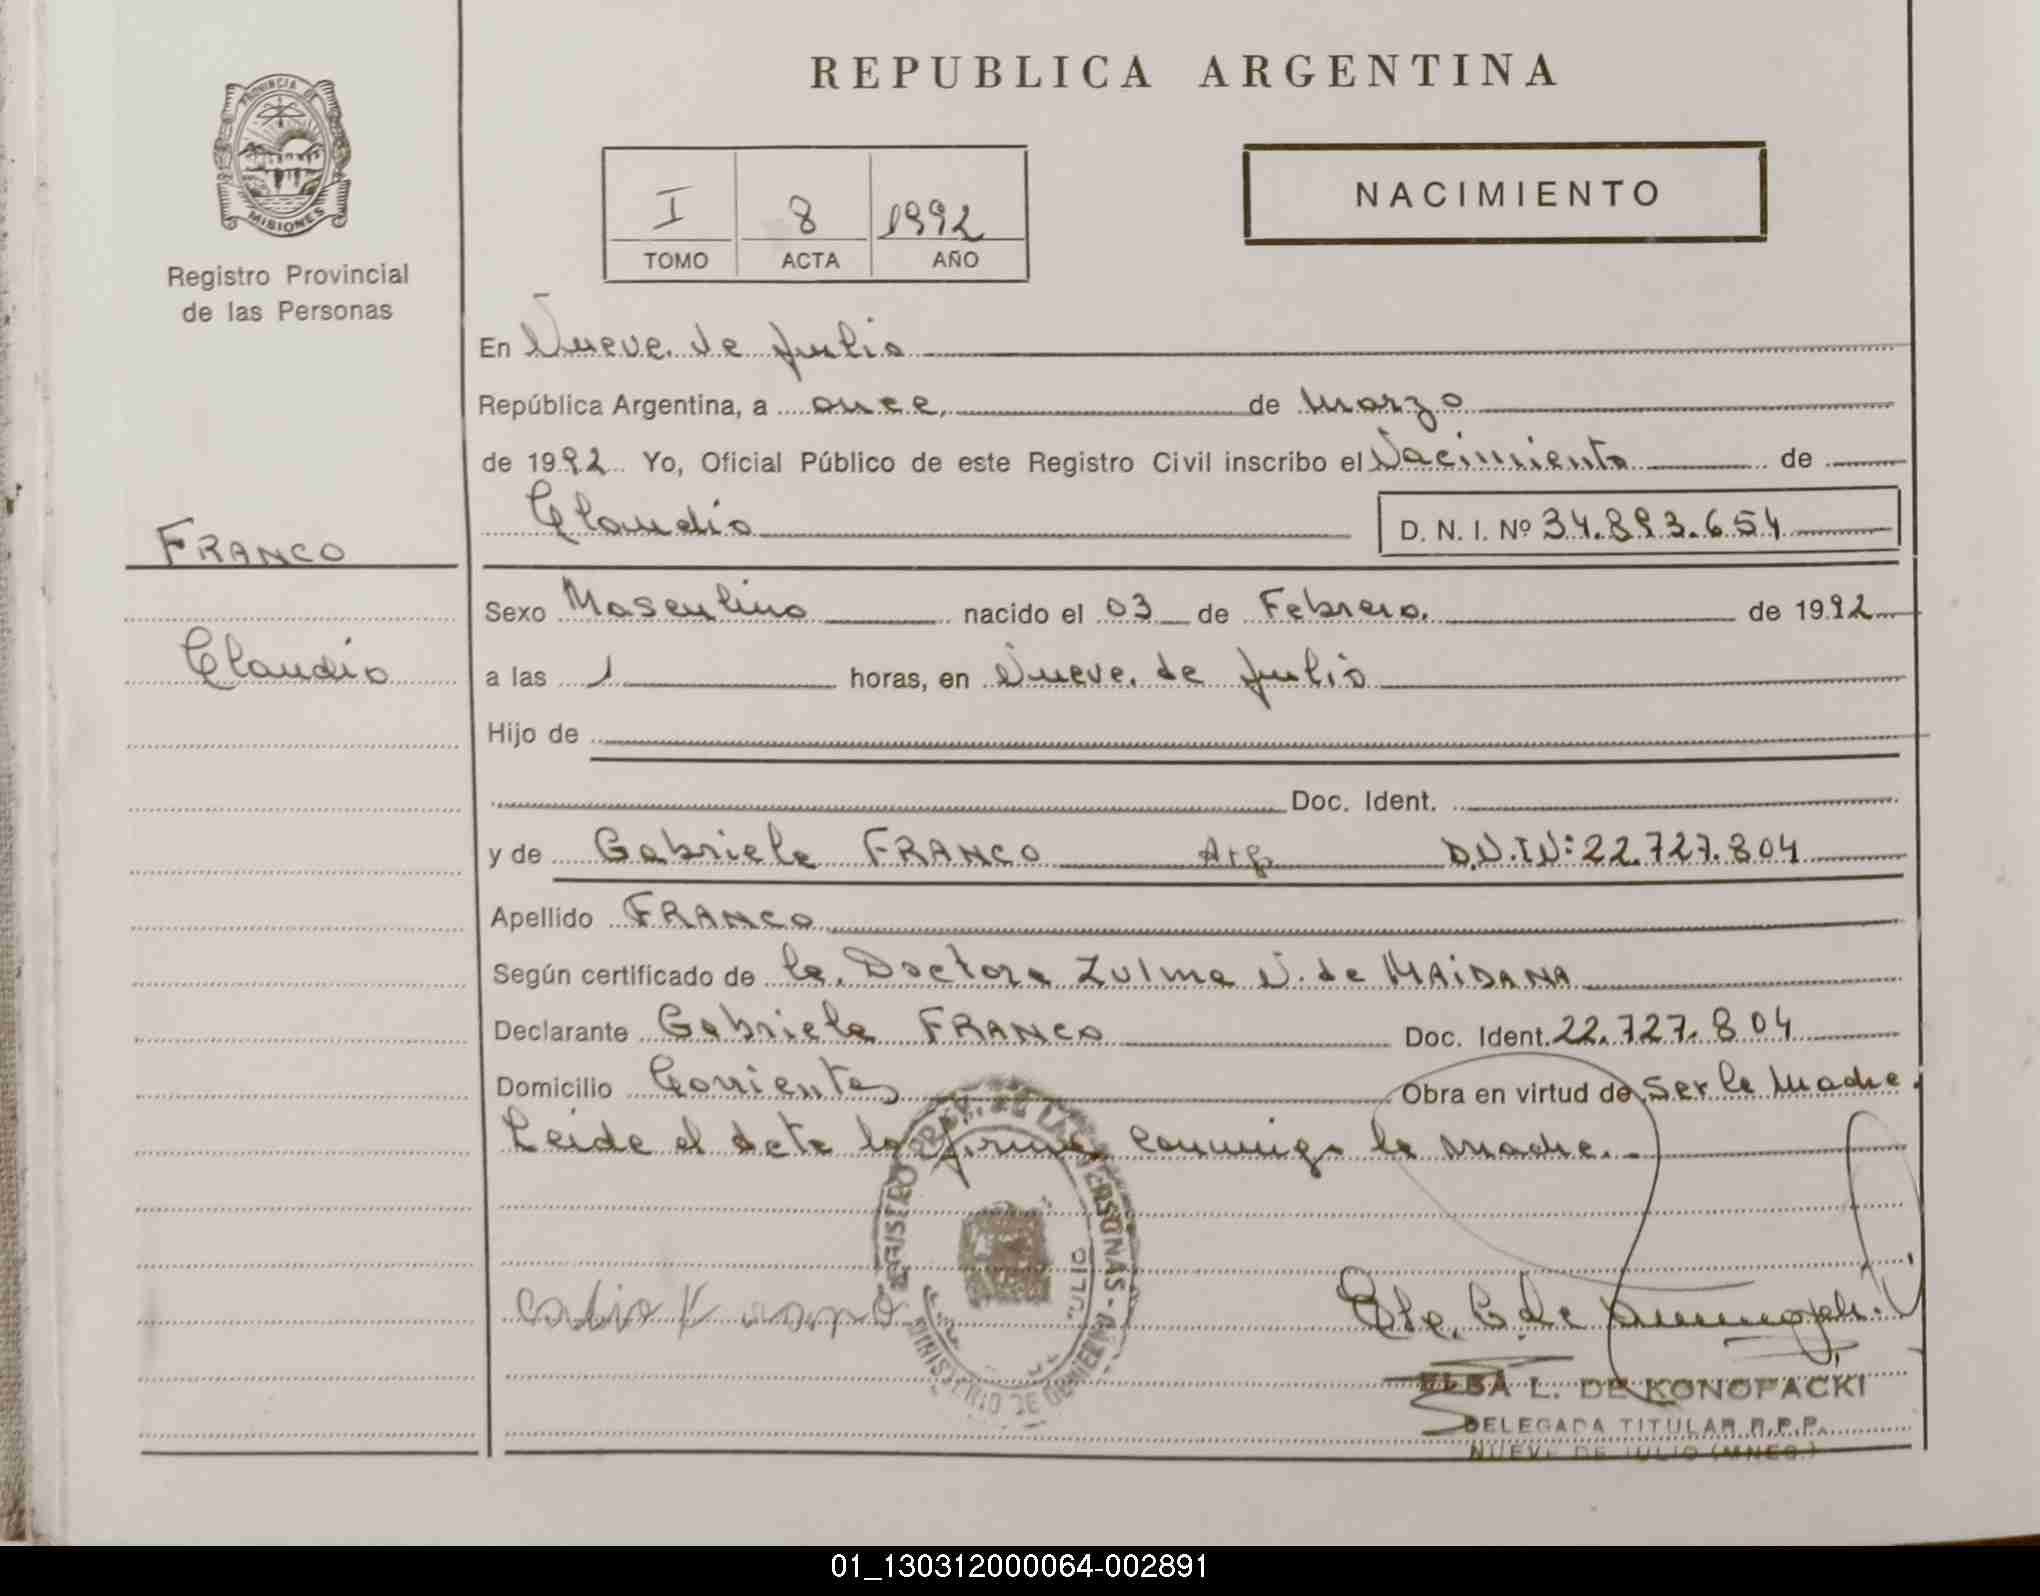 REPUBLICA ARGENTINA
PROVINCIA DE
MISIONES
Registro Provincial
de las Personas
I 8 1992
TOMO ACTA AÑO
NACIMIENTO
En Nueve de Julio
República Argentina, a once de Marzo
de 1992 Yo, Oficial Público de este Registro Civil inscribo el Nacimiento de
Claudio D. N. I. Nº 34.893.654
FRANCO
Claudio
Sexo Masculino nacido el 03 de Febrero de 1992
a las 1 horas, en Nueve de Julio
Hijo de
Doc. Ident.
y de Gabriela FRANCO Arg. D.N.I.N: 22.727.804
Apellido FRANCO
Según certificado de la Doctora Zulma N. de MAIDANA
Declarante Gabriela FRANCO Doc. Ident. 22.727.804
Domicilio Corrientes Obra en virtud de ser la Madre.
Leida el acta la firma conmigo la madre.
REGISTRO PROV. DE LAS PERSONAS -
JULIO
MINISTERIO DE GOBIERNO
ELBA L. DE KONOPACKI
DELEGADA TITULAR R.P.P.
NUEVE DE JULIO (MNES.)
01_130312000064-002891